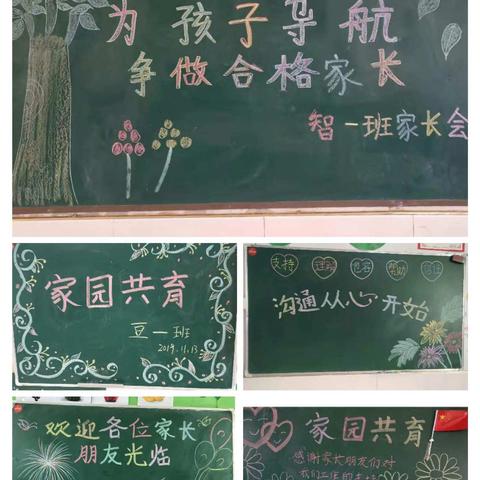 为孩子导航
争做合格家长
智一班家长会
家园共育
豆一班
2019.11.13
支持 理解 包容 帮助 信任
沟通从心开始
欢迎各位家长
朋友光临
家园共育
感谢家长朋友们对
我们工作的支持